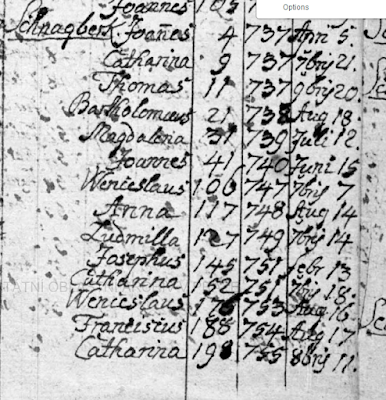 Options
Joannes 105
Schnagberg. Joannes 4 737 Jan 5.
Catharina 9 737 7bris 21.
Thomas 11 737 9bris 20.
Bartholomeus 21 738 Aug 18.
Magdalena 31 739 Juli 12
Joannes 41 740 Juni 15
Wenceslaus 100 747 7bris 7
Anna 117 748 Aug 14
Ludmilla 127 749 7bris 14
Josephus 145 751 Febr 13
Catharina 152 751 7bris 18
Wenceslaus 176 753 Aug 16
Franciscus 188 754 Aug 17
Catharina 198 755 8bris 11.